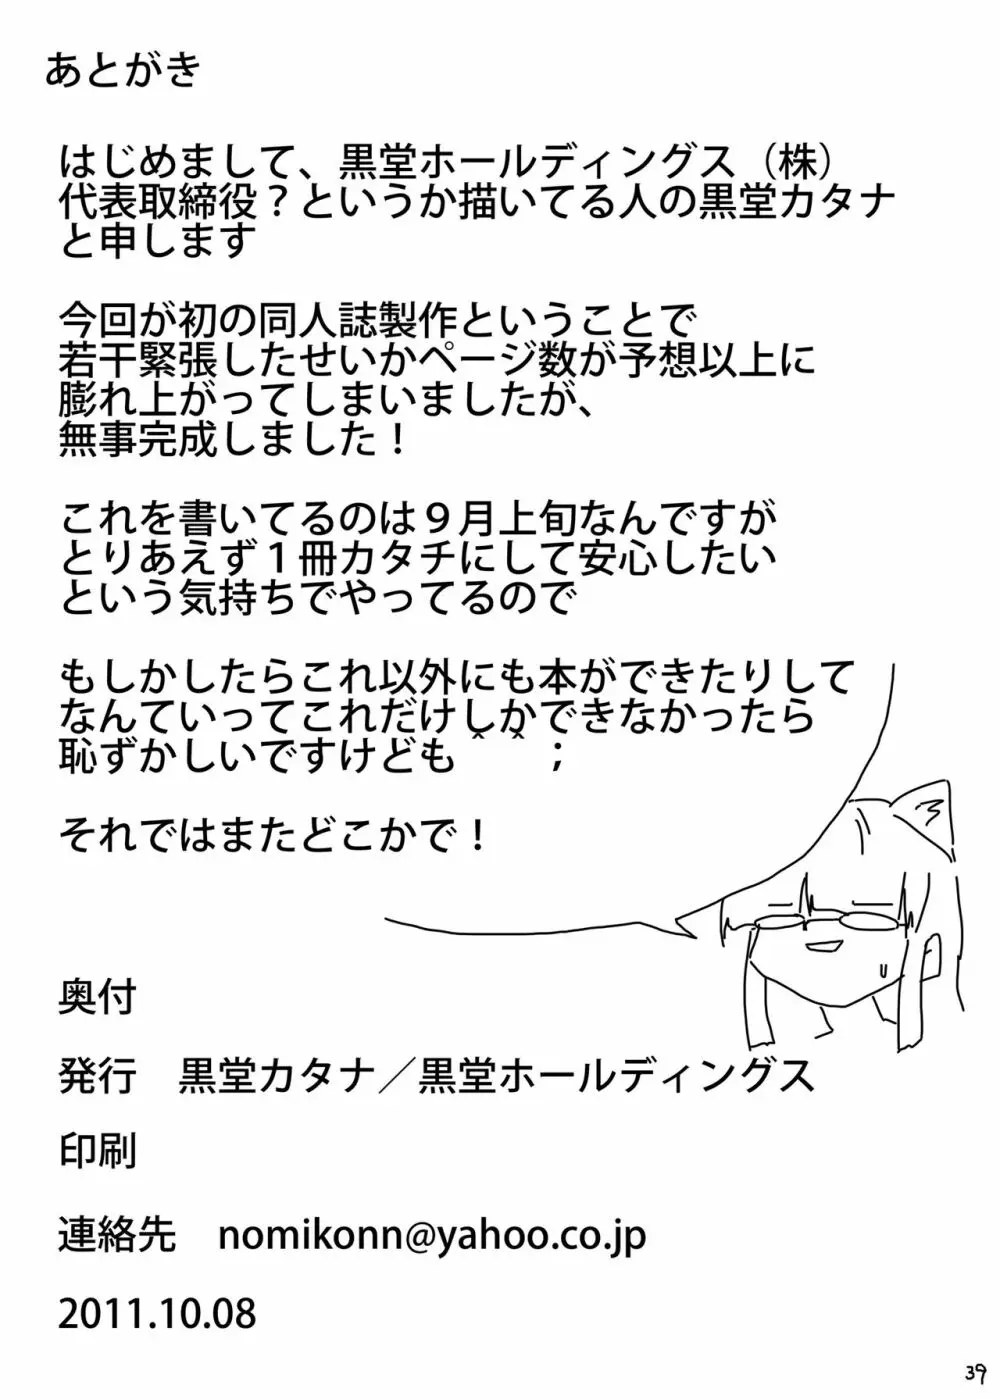 あとがき
はじめまして、黒堂ホールディングス（株）
代表取締役？というか描いてる人の黒堂カタナ
と申します
今回が初の同人誌製作ということで
若干緊張したせいかページ数が予想以上に
膨れ上がってしまいましたが、
無事完成しました！
これを書いてるのは９月上旬なんですが
とりあえず１冊カタチにして安心したい
という気持ちでやってるので
もしかしたらこれ以外にも本ができたりして
なんていってこれだけしかできなかったら
恥ずかしいですけども＾＾；
それではまたどこかで！
奥付
発行　黒堂カタナ／黒堂ホールディングス
印刷
連絡先　nomikonn@yahoo.co.jp
2011.10.08
39